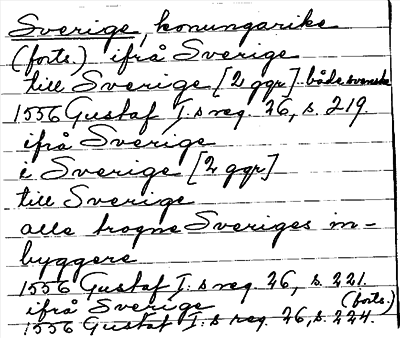 Sverige, konungarike
(forts.) ifrå Sverige
till Sverige [2 ggr] både svenska
1556 Gustaf I:s reg. 26, s. 219.
ifrå Sverige
i Sverige [2 ggr]
till Sverige
alle trogne Sveriges in-
byggere
1556 Gustaf I:s reg. 26, s. 221.
ifrå Sverige (forts.)
1556 Gustaf I:s reg. 26, s. 224.